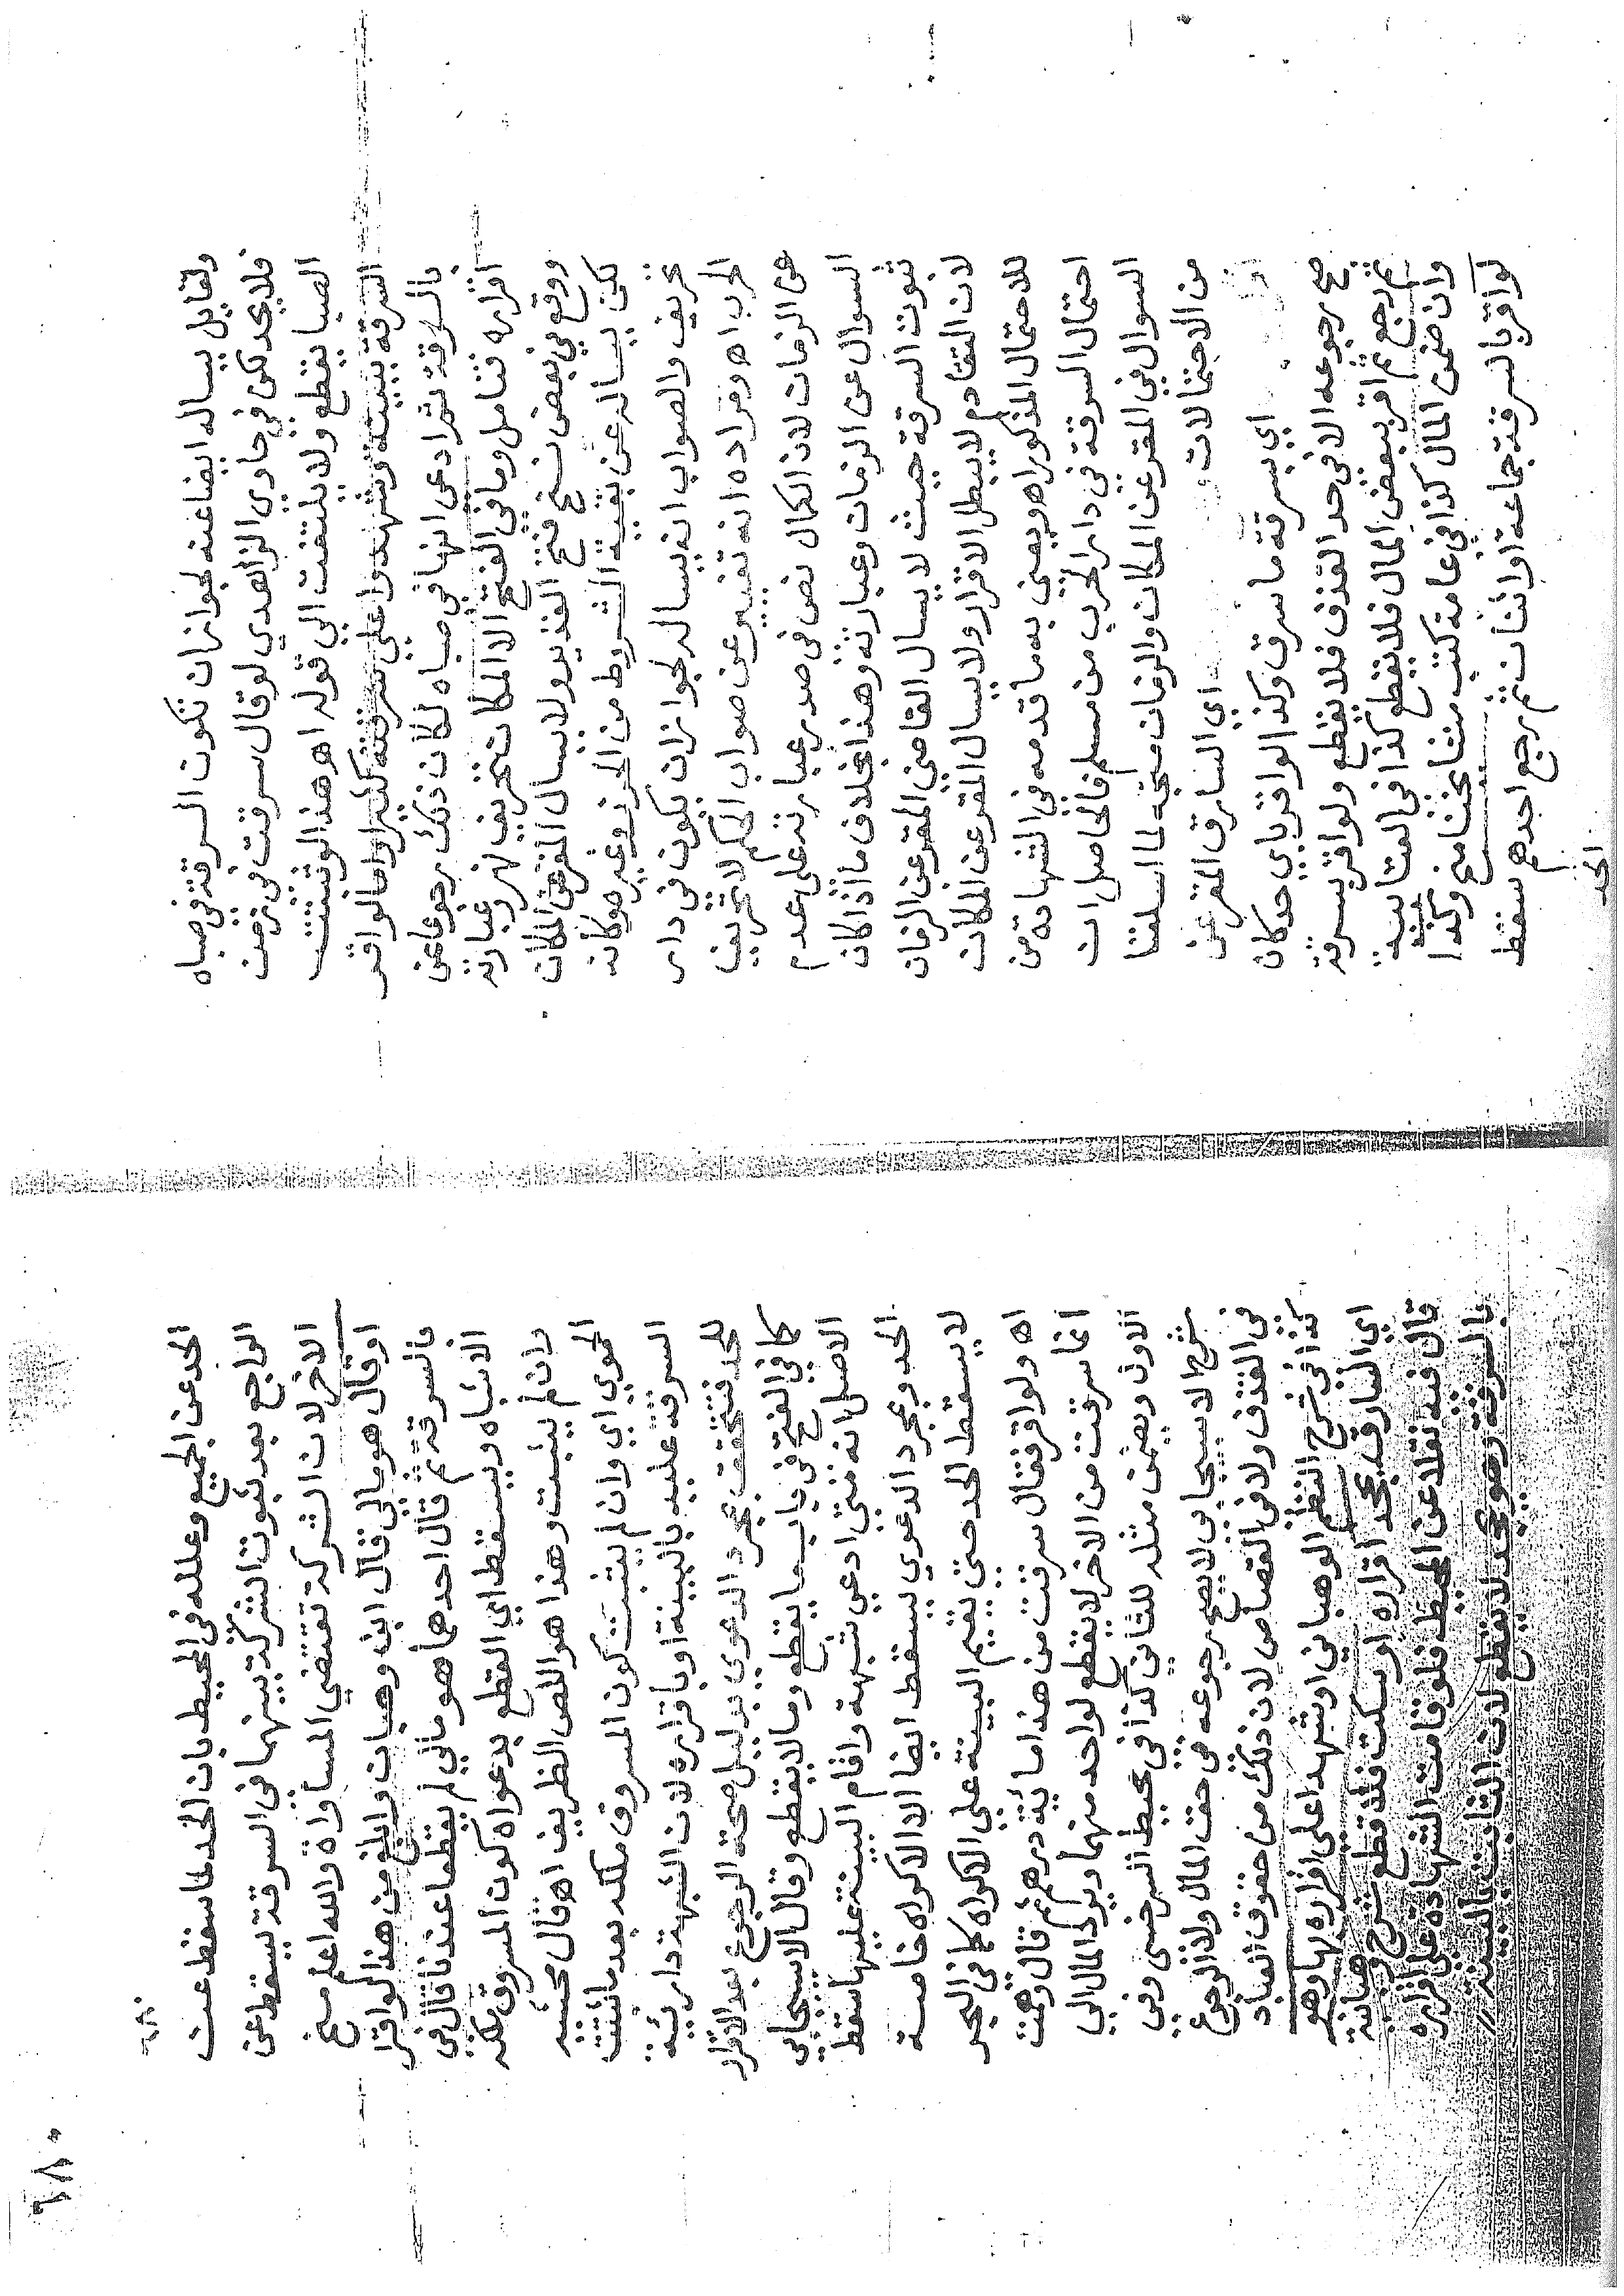 ولقايل يساله ايضا عنه لجوازان تكون السرقة في صباه
فلا يحد لكن في حاوي الزاهدي لو قال سرقت في زمن
الصبا يقطع ولا يلتفت الي قوله اهـ هذا لو ثبتت
السرقة ببينة وشهدوا علي سرقته كثيرا اما لو اقر
بالسرقة ثم ادعي انها في صباه لكان ذلك رجوعا عن
اقراره فتامل وما في الفتح الا المكان تحريف نهر وعبارة
ووقع في بعض نسخ فتح القدير ولا يسال المقر عن المكان
لكن يساله عن بقية الشروط من الحرز وغيره وكانه
تحريف والصواب انه يساله لجوازان يكون في دار
الحرب اهـ ومراده انه تغيير عن صواب الحكم لا تحريف
عن الزمان لان الكمال نص في صدر عبارته علي عدم
السوال عن الزمان وعبارته وهذا بخلاف ما اذا كان
ثبوت السرقة حيث لا يسال القاضي المقر عن الزمان
لان التقادم لا يبطل الاقرار ولا يسال المقر عن المكان
للاحتمال المذكور اهـ ويعني به ما قدمه في الشهادة من
احتمال السرقة في دار الحرب من مسلم فالحاصل ان
السوال في المقر عن المكان والزمان متجه لما اسلفنا
من الاحتمالات اي السارق المقر عن
اي بسرقة ما سرق وكذا لو اقر باي حد كان
صح رجوعه الا في حد القذف فلا يقطع ولو اقر بسرقة
ثم رجع ثم اقر ببعض المال فلا يقطع كذا في العتابية
وان ضمن المال كذا في عامة كتب مشايخنا منح وكذا
لو اقر بالسرقة جماعة او اثنان ثم رجع احدهم سقط
الحد
٦٨٠
٦٨٠
الحد عن الجميع وعلله في المحيط بان الحد لما سقط عن
الراجع بعد ثبوت الشركة بينهما في السرقة يسقط عن
الاخر لان الشركة تقتضي المساواة والله اعلم منح
او قال هو مالي قال ابن وهبان وابلغ من هذا لو اقرا
بالسرقة ثم قال احدهما هو مالي لم يقطعا عندنا قال في
الاشباه ويسقط اي القطع بدعواه كون المسروق ملكه
وان لم يثبت وهذا هو اللص الظريف اهـ قال محشيه
الحموي اي وان لم يثبت كون المسروق ملكه بعد ما ثبتت
السرقة عليه بالبينة او باقراره لان الشبهة داريئة
للحد فتتحقق بمجرد الدعوي بدليل صحة الرجوع بعد الاقرار
كما في الفتح في باب ما يقطع وما لا يقطع وقال الاسبيجابي
الاصل انه متي ادعي شبهة واقام البينة عليها سقط
الحد وبمجرد الدعوي يسقط ايضا الا الاكراه خاصة
لا يسقط الحد حتي يقيم البينة علي الاكراه كما في البحر
اهـ ولو اقر فقال سرقت من هذا مائة درهم ثم قال وهمت
انما سرقت من الاخر لا يقطع لواحد منهما ويرد المال الي
الاول ويضمن مثله للثاني كذا في محيط السرخسي وفي
شرح الاسبيجابي لا يصح رجوعه في حق المال ولا الرجوع
في القذف ولا في القصاص لان ذلك من حقوق العباد
كذا في شرح النظم الوهباني او شهدا علي اقراره بها وهو
اي السارق يجحد اقراره او سكت فلا قطع شرح وهبانية
قال فيه نقلا عن المحيط فلو قامت الشهادة علي اقراره
بالسرقة وهو يجحد لا يقطع لان الثابت بالبينة